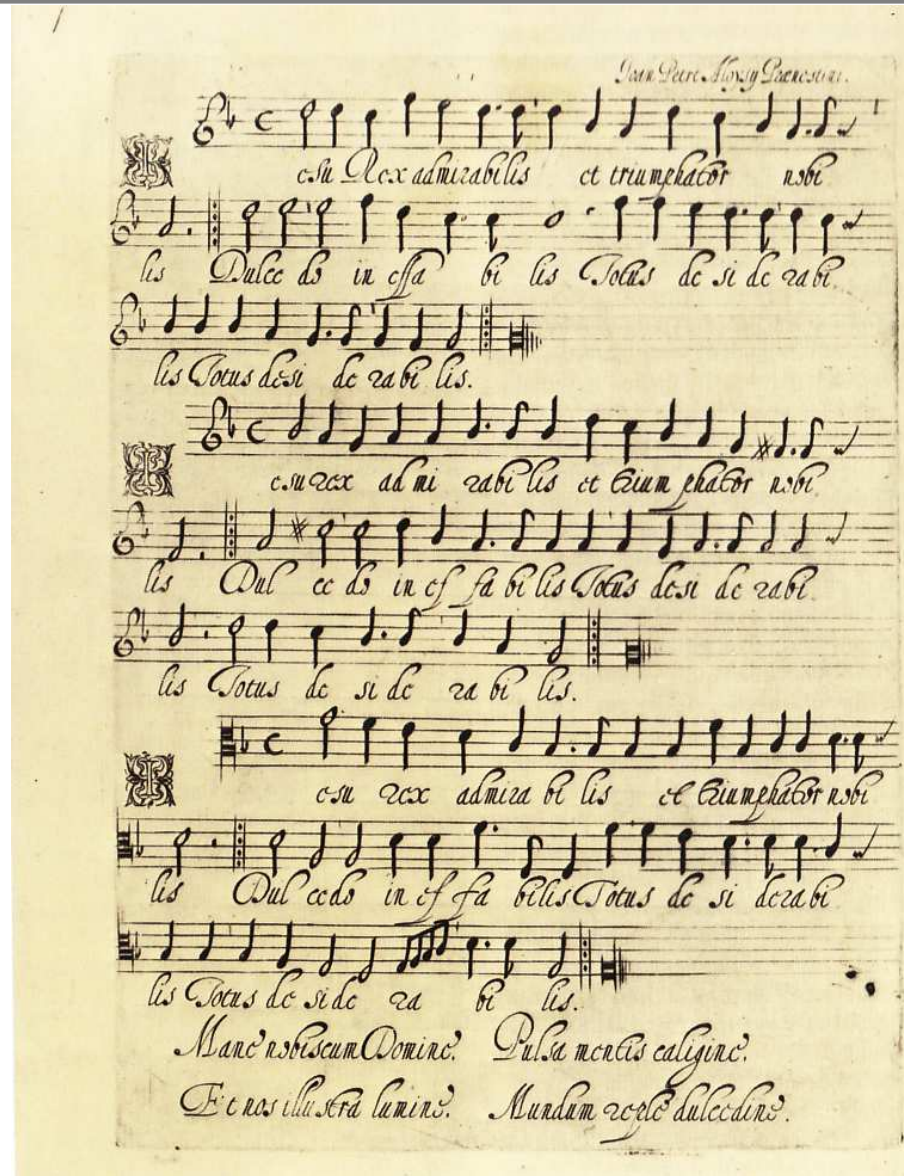 Joan Petri Aloysij Prænestini.
Iesu Rex admirabilis et triumphator nobi
lis Dulce do in effa bi lis Totus de si de rabi
lis Totus desi de rabi lis.
Iesu rex ad mi rabi lis et trium phator nobi
lis Dul ce do in ef fa bi lis Totus desi de rabi
lis Totus de si de ra bi lis.
Iesu rex admira bi lis et triumphator nobi
lis Dul cedo in ef fa bilis Totus de si derabi
lis Totus de si de ra bi lis.
Mane nobiscum Domine. Pulsa mentis caligine.
Et nos illustra lumine. Mundum reple dulcedine.